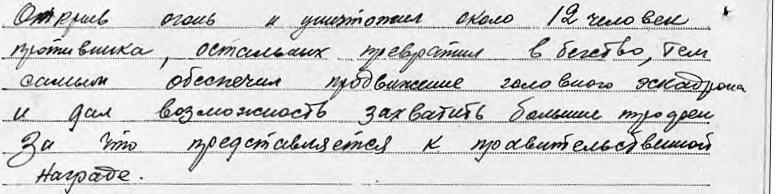 Открыв огонь и уничтожил около 12 человек
противника, остальных превратил в бегство, тем
самым обеспечил продвижение головного эскадрона
и дал возможность захватить большие трофеи
За что представляется к правительственной
награде.